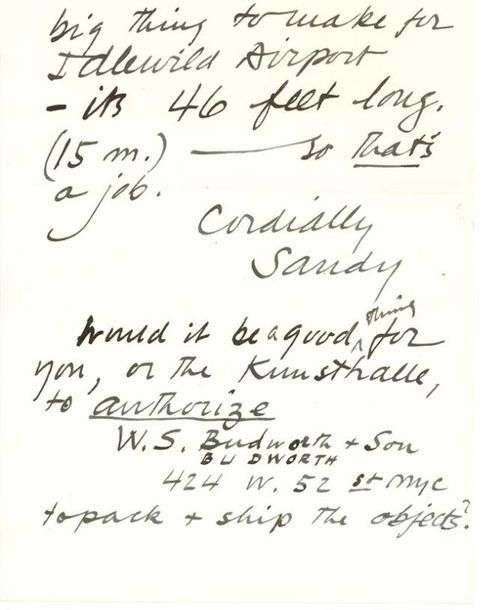 big thing to make for
Idlewild Airport
- its 46 feet long.
(15 m.) — so that's
a job.
Cordially
Sandy
Would it be a good thing for
you, or the Kunsthalle,
to authorize
W.S. Budworth + Son
BUDWORTH
424 W. 52 st NYC
to pack + ship the objects?